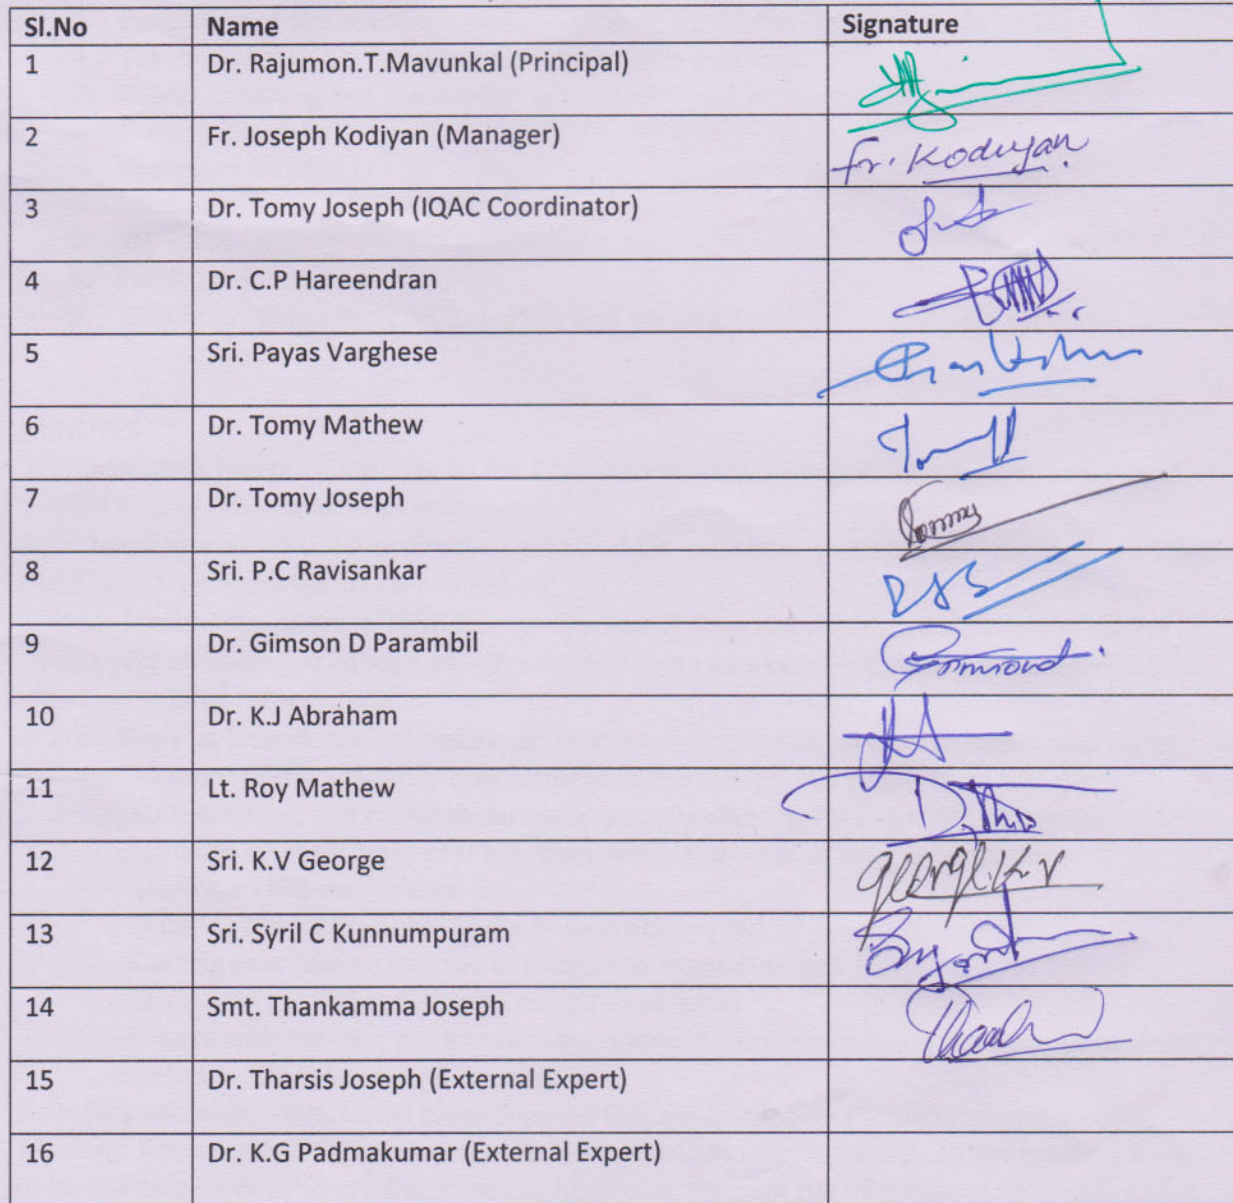 Sl.No Name Signature
1 Dr. Rajumon.T.Mavunkal (Principal)
2 Fr. Joseph Kodiyan (Manager) Fr. Kodiyan
3 Dr. Tomy Joseph (IQAC Coordinator)
4 Dr. C.P Hareendran
5 Sri. Payas Varghese
6 Dr. Tomy Mathew
7 Dr. Tomy Joseph
8 Sri. P.C Ravisankar
9 Dr. Gimson D Parambil
10 Dr. K.J Abraham
11 Lt. Roy Mathew
12 Sri. K.V George George.K.V
13 Sri. Syril C Kunnumpuram
14 Smt. Thankamma Joseph
15 Dr. Tharsis Joseph (External Expert)
16 Dr. K.G Padmakumar (External Expert)